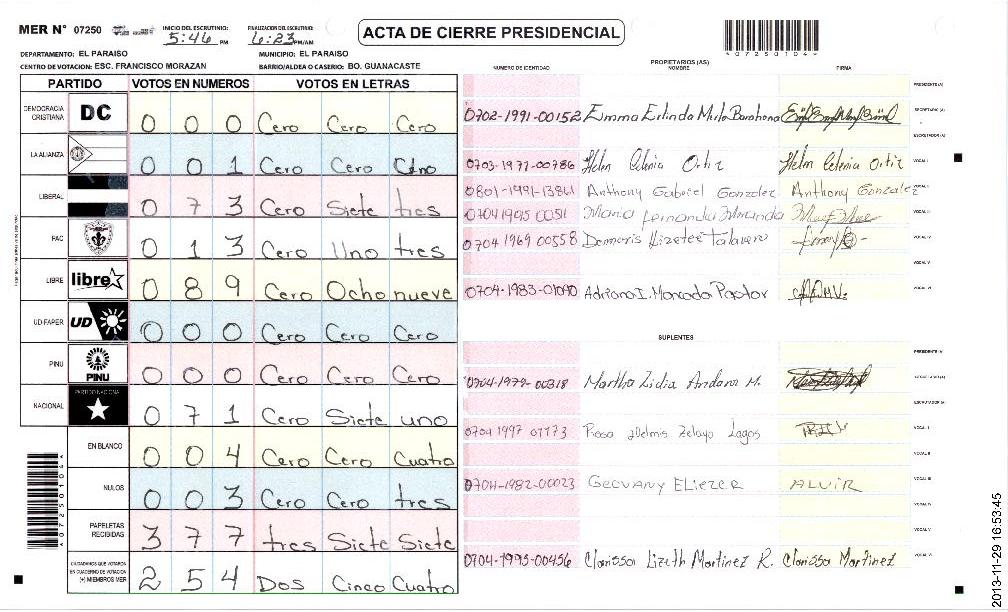 MER N° 07250
INICIO DEL ESCRUTINIO:
5:46 PM
FINALIZACION DEL ESCRUTINIO:
6:23 PM/AM
ACTA DE CIERRE PRESIDENCIAL
DEPARTAMENTO: EL PARAISO
MUNICIPIO: EL PARAISO
CENTRO DE VOTACION: ESC. FRANCISCO MORAZAN
BARRIO/ALDEA O CASERIO: BO. GUANACASTE
PARTIDO VOTOS EN NUMEROS VOTOS EN LETRAS
DEMOCRACIA CRISTIANA DC 0 0 0 Cero Cero Cero
LA ALIANZA 0 0 1 Cero Cero
LIBERAL 0 7 3 Cero Siete tres
PAC 0 1 3 Cero Uno tres
LIBRE libre 0 8 9 Cero Ocho nueve
UD-FAPER UD 0 0 0 Cero Cero Cero
PINU PINU 0 0 0 Cero Cero Cero
NACIONAL PARTIDO NACIONAL 0 7 1 Cero Siete uno
EN BLANCO 0 0 4 Cero Cero Cuatro
NULOS 0 0 3 Cero Cero tres
PAPELETAS RECIBIDAS 3 7 7 tres Siete Siete
CIUDADANOS QUE VOTARON EN CUADERNO DE VOTACION (+) MIEMBROS MER 2 5 4 Dos Cinco Cuatro
PROPIETARIOS (AS)
NUMERO DE IDENTIDAD NOMBRE FIRMA
PRESIDENTE (A)
0702-1991-00152 Emma Erlinda Barahona SECRETARIO (A)
ESCRUTADOR (A)
0703-1977-00786 Helen Ortiz Helen Ortiz VOCAL I
0801-1991-13861 Anthony Gabriel Gonzalez Anthony Gonzalez
0704 1995 00511 Maria Fernanda VOCAL III
0704 1969 00558 Damaris VOCAL IV
VOCAL V
0704-1983-01090 Adriana I. Moncada Pastor VOCAL VI
SUPLENTES
PRESIDENTE (A)
0704-1979-00318 Martha Lidia Andara M.
ESCRUTADOR (A)
0704 1997 01173 Rosa Zelaya Lagos VOCAL I
VOCAL II
0704-1982-00023 Geovany Eliezer VOCAL III
VOCAL IV
VOCAL V
0704-1995-00456 Clarissa Lizeth Martinez R. Clarissa Martinez VOCAL VI
2013-11-29 16:53:45